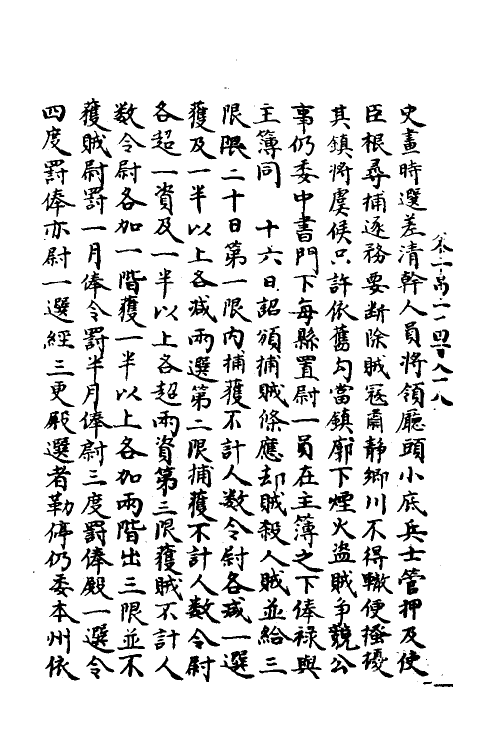 卷一萬一千四百八十八
史畫時選差清幹人員將領廳頭小底兵士管押及使
臣根尋捕逐務要斷除賊寇肅静鄉川不得輙便搔擾
其鎮將虞候只許依舊勾當鎮郭下煙火盜賊爭競公
事仍委中書門下每縣置尉一員在主簿之下俸禄與
主簿同　十六日詔頒捕賊條應刧賊殺人賊並給三
限限二十日第一限内捕獲不計人数令尉各减一選
獲及一半以上各减兩選第二限捕獲不計人数令尉
各超一資及一半以上各超兩資第三限獲賊不計人
数令尉各加一階獲一半以上各加兩階出三限並不
獲賊尉罰一月俸令罰半月俸尉三度罰俸殿一選令
四度罰俸亦尉一選經三更殿選者勒停仍委本州依